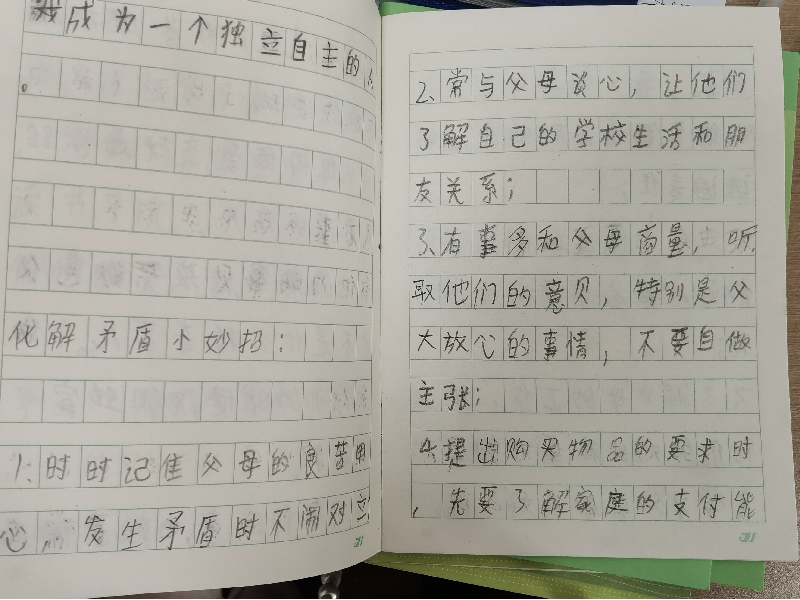 我成为一个独立自主的人
。
化解矛盾小妙招：
1、时时记住父母的良苦用
心，发生矛盾时不闹对立
2、常与父母谈心，让他们
了解自己的学校生活和朋
友关系；
3、有事多和父母商量，听
取他们的意贝，特别是父
大放心的事情，不要自做
主张；
4、提出购买物品的要求时
，先要了解家庭的支付能